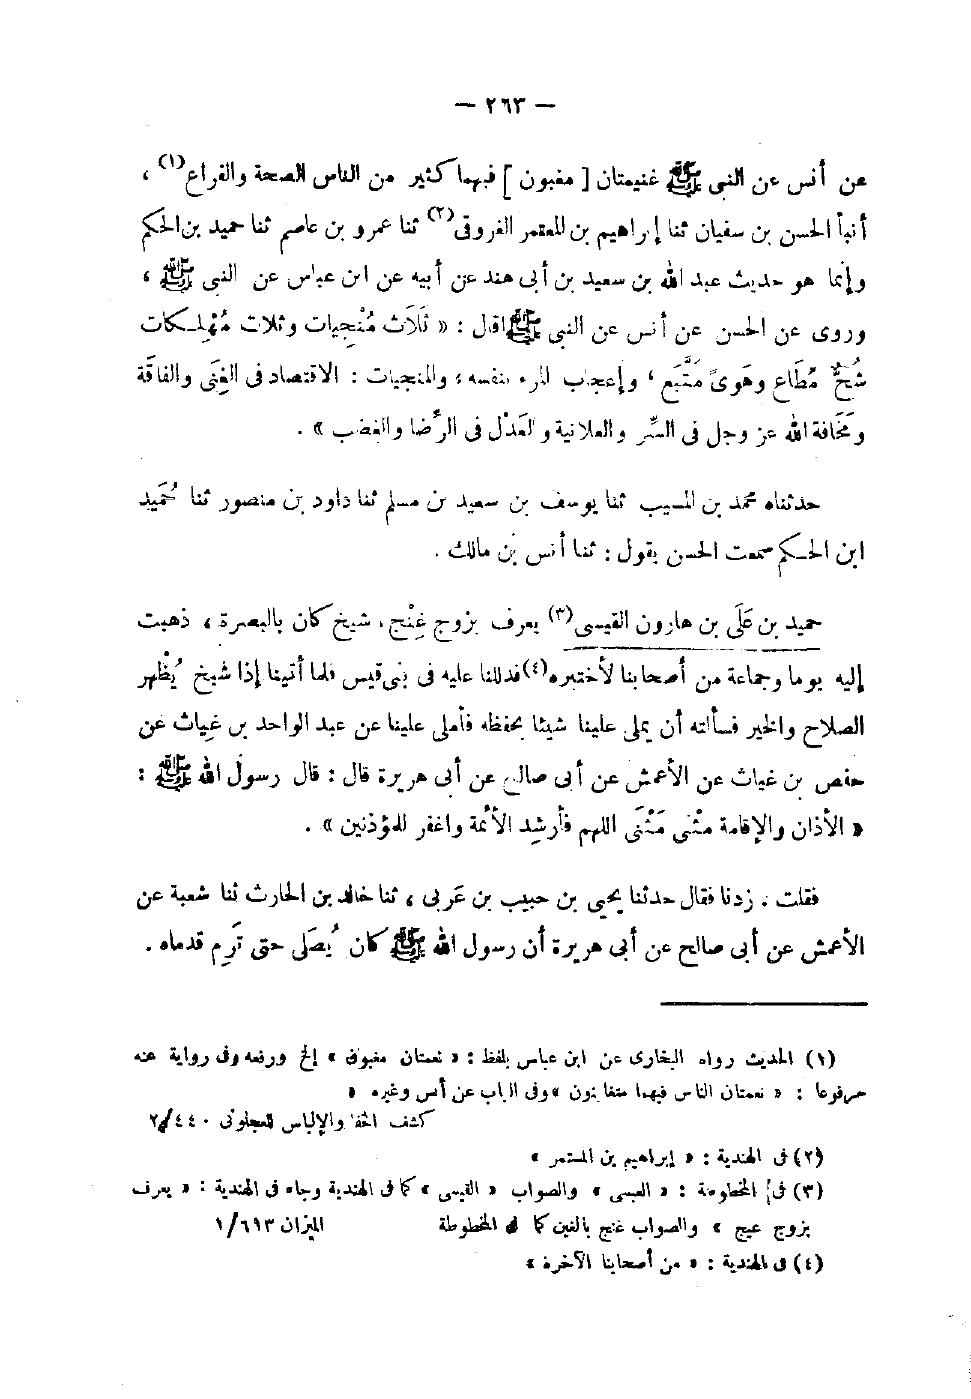 — ٢٦٣ —
عن أنس عن النبى ﷺ غنيمتان [ مغبون ] فيهما كثير من الناس الصحة والفراغ(١) ،
أنبأ الحسن بن سفيان ثنا إبراهيم بن المعتمر الفروقى(٢) ثنا عمرو بن عاصم ثنا حميد بن الحكم
وإنما هو حديث عبد الله بن سعيد بن أبى هند عن أبيه عن ابن عباس عن النبى ﷺ ،
وروى عن الحسن عن أنس عن النبى ﷺ قال : « ثَلَاث مُنْجِيات وثلاث مُهْلِكات
شُحٌّ مُطَاع وهَوىً مَتَّبَع ، وإعجاب المرء بنفسه ، والمنجيات : الاقتصاد فى الغِنَى والفاقَة
ومَخَافة الله عز وجل فى السِّر والعلانية والعَدْل فى الرِّضا والغضب » .
حدثناه محمد بن المسيب ثنا يوسف بن سعيد بن مسلم ثنا داود بن منصور ثنا حُمَيد
ابن الحكم سمعت الحسن يقول : ثنا أنس بن مالك .
حميد بن عَلَى بن هارون القيسى(٣) يعرف بزوج غِنْج ، شيخ كان بالبصرة ، ذهبت
إليه يوما وجماعة من أصحابنا لأختبره(٤) فدللنا عليه فى بنى قيس فلما أتينا إذا شيخ يُظْهر
الصلاح والخير فسألته أن يملى علينا شيئا بحفظه فأملى علينا عن عبد الواحد بن غِياث عن
حفص بن غياث عن الأعمش عن أبى صالح عن أبى هريرة قال : قال رسول الله ﷺ :
« الأذان والإقامة مثْنى مَثْنَى اللهم فأرشِد الأئمة واغفر للمؤذنين » .
فقلت . زدنا فقال حدثنا يحيى بن حبيب بن عَربى ، ثنا خالد بن الحارث ثنا شعبة عن
الأعمش عن أبى صالح عن أبى هريرة أن رسول الله ﷺ كان يُصَلى حتى تَرِم قدماه .
(١) الحديث رواه البخارى عن ابن عباس بلفظ : « نعمتان مغبون » إلخ ورفعه وفى رواية عنه
مرفوعا : « نعمتان الناس فيهما متغابنون » وفى الباب عن أنس وغيره »
كشف الخفا والإلباس للعجلونى ٢/٤٤٠
(٢) فى الهندية : « إبراهيم بن المستمر »
(٣) فى المخطوطة : « العبسى » والصواب « القيسى » كما فى الهندية وجاء فى الهندية : « يعرف
بزوج عيج » والصواب غنج بالغين كما فى المخطوطة الميزان ١/٦١٣
(٤) فى الهندية : « من أصحابنا الآخرة »